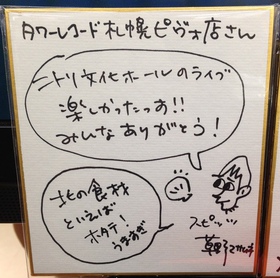 タワーレコード札幌ピヴォ店さん
ニトリ文化ホールのライブ
楽しかったっあ!!
みんなありがとう!
北の食材
といえば
ホタテ!
うますぎ
スピッツ
草野マサムネ